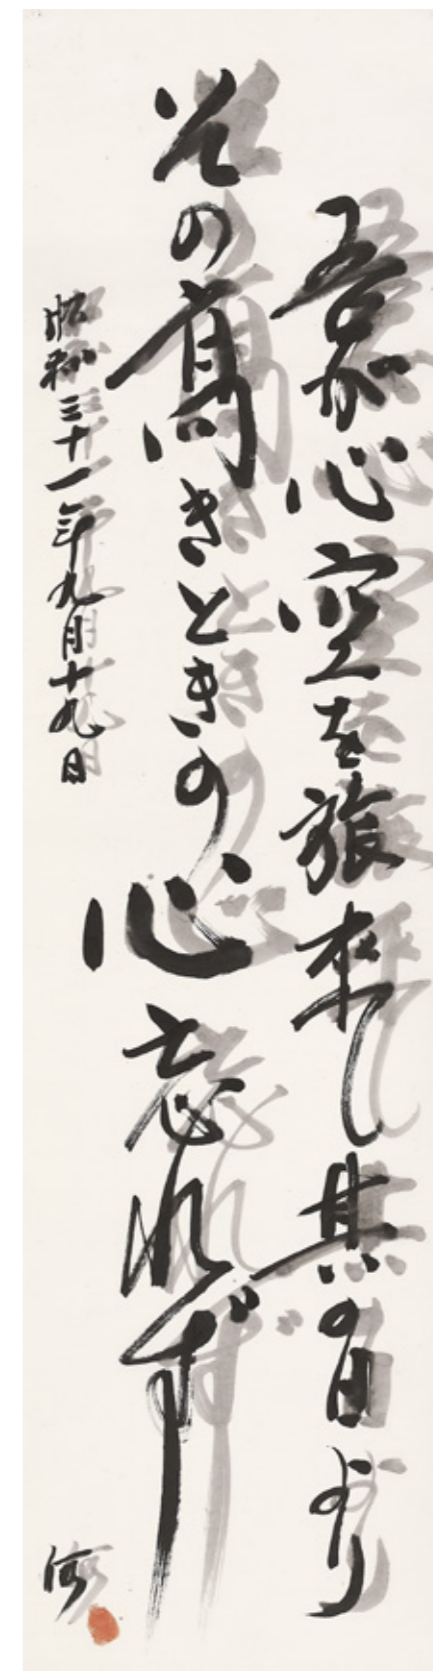 吾が心空を旅来し其の日より
その高きときの心忘れず
昭和三十一年九月十九日